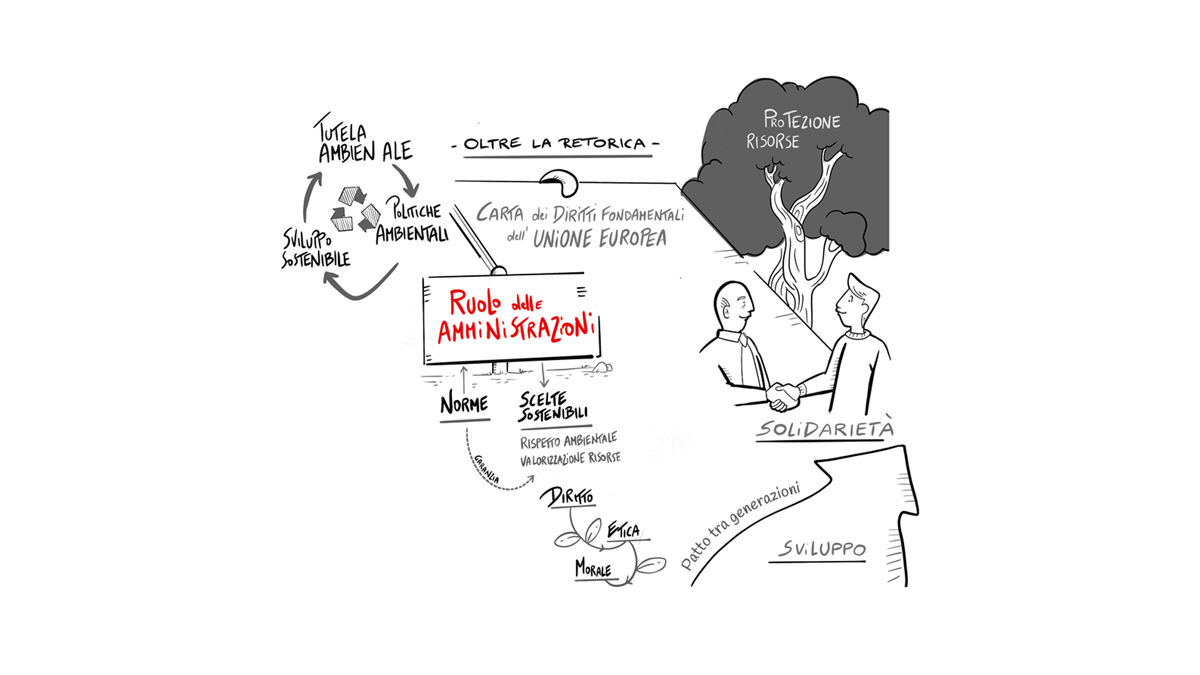 TUTELA
AMBIEN ALE
POLITICHE
AMBIENTALI
SVILUPPO
SOSTENIBILE
- OLTRE LA RETORICA -
CARTA dei DIRITTI FONDAMENTALI
dell' UNIONE EUROPEA
PROTEZIONE
RISORSE
RUOLO delle
AMMINISTRAZIONI
NORME
SCELTE
SOSTENIBILI
RISPETTO AMBIENTALE
VALORIZZAZIONE RISORSE
GARANZIA
DIRITTO
ETICA
MORALE
SOLIDARIETÀ
Patto tra generazioni
SVILUPPO